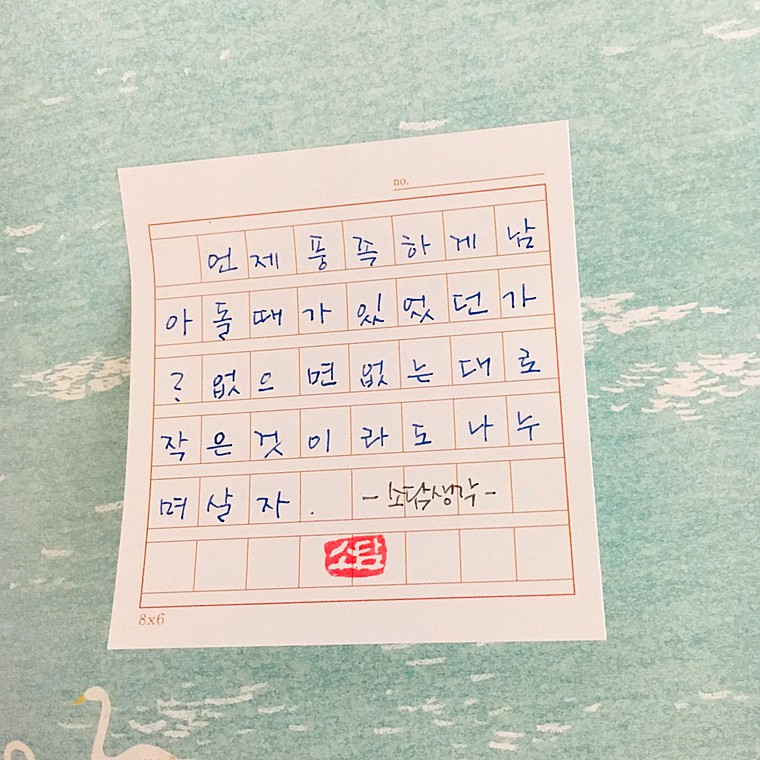 no.
언제풍족하게남
아돌때가있었던가
? 없으면없는대로
작은것이라도나누
며살자. -소담생각-
소담
8x6